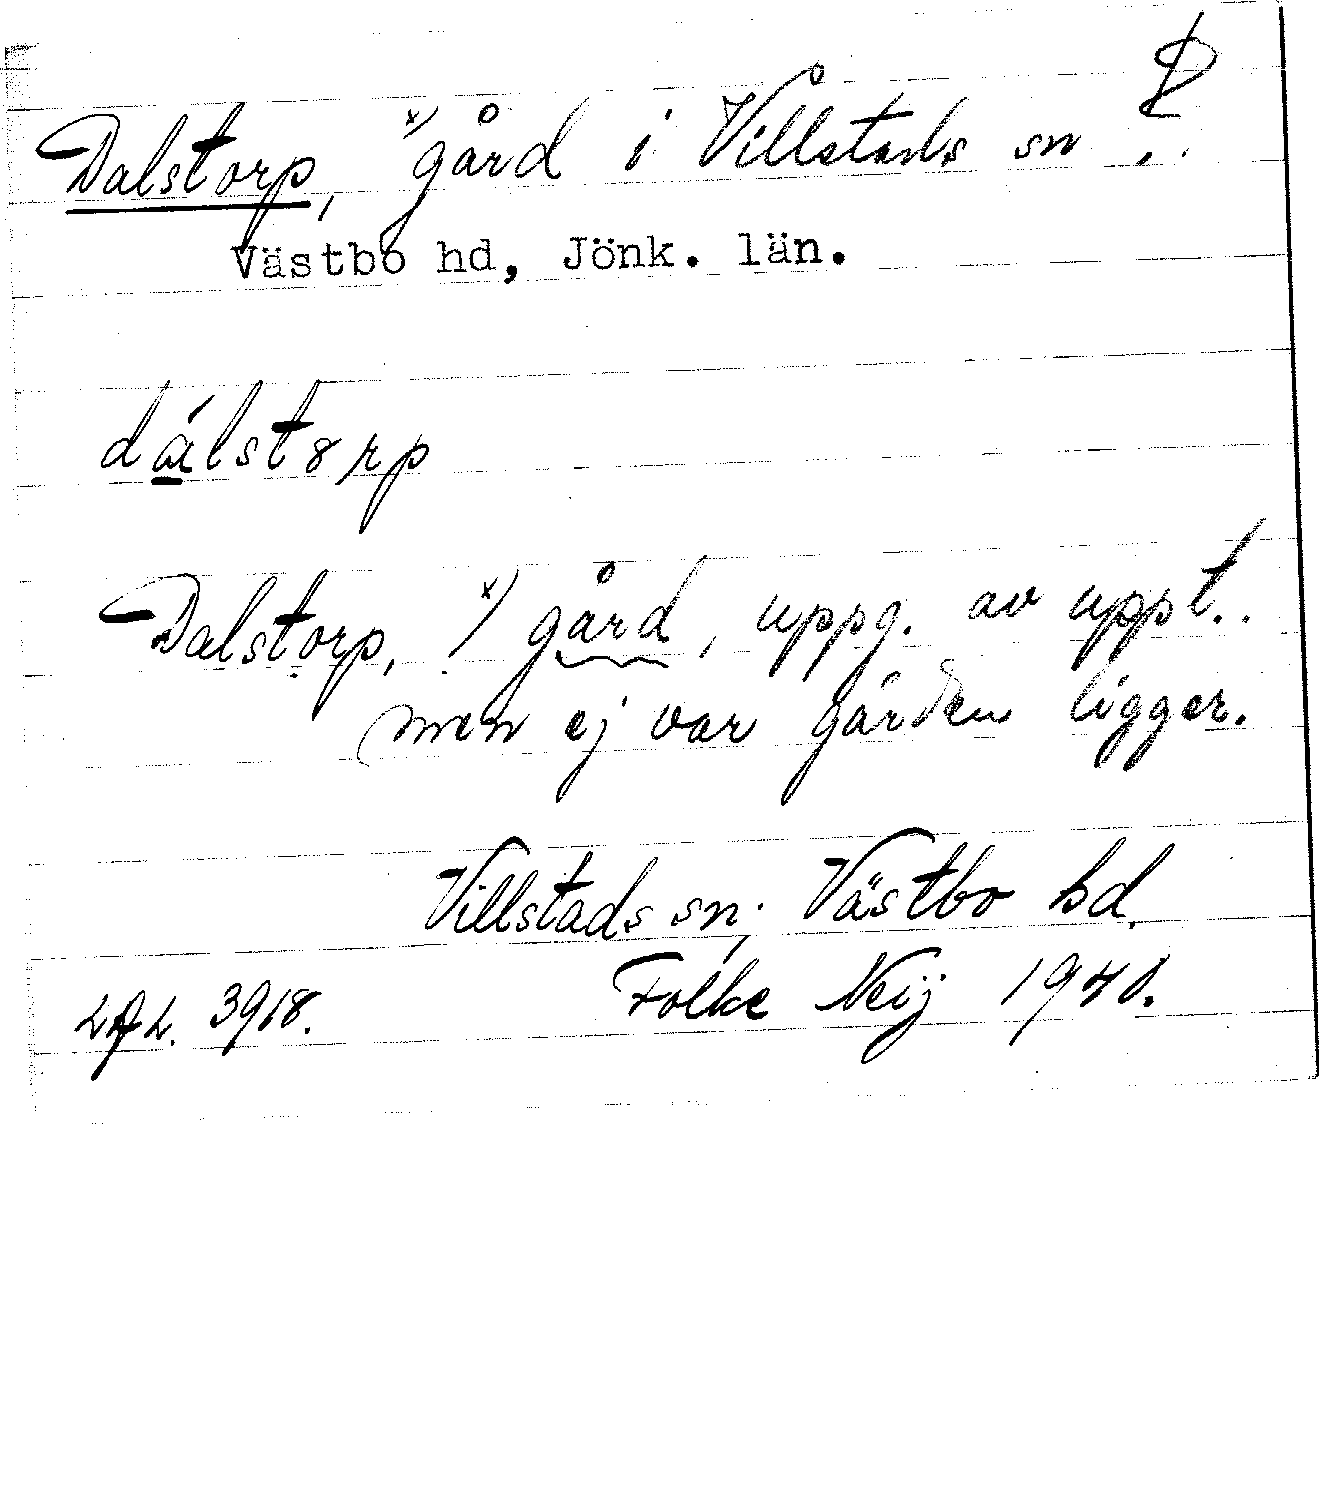 Dalstorp, x) gård i Villstads sn
Västbo hd, Jönk. län.
dálstorp
Dalstorp, x) gård, uppg. av uppt.
men ej var gården ligger.
Villstads sn, Västbo hd.
LAL. 3918. Folke Neij 1940.